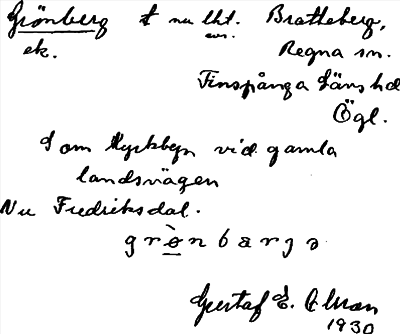 Grönberg t nu lht. Bratteberg,
evs.
ek. Regna sn.
Finspånga Läns hd
Ögl.
S om Kyrkbyn vid gamla
landsvägen
Nu Fredriksdal.
grø̀nbarjə
Gustaf E. Olsson
1930